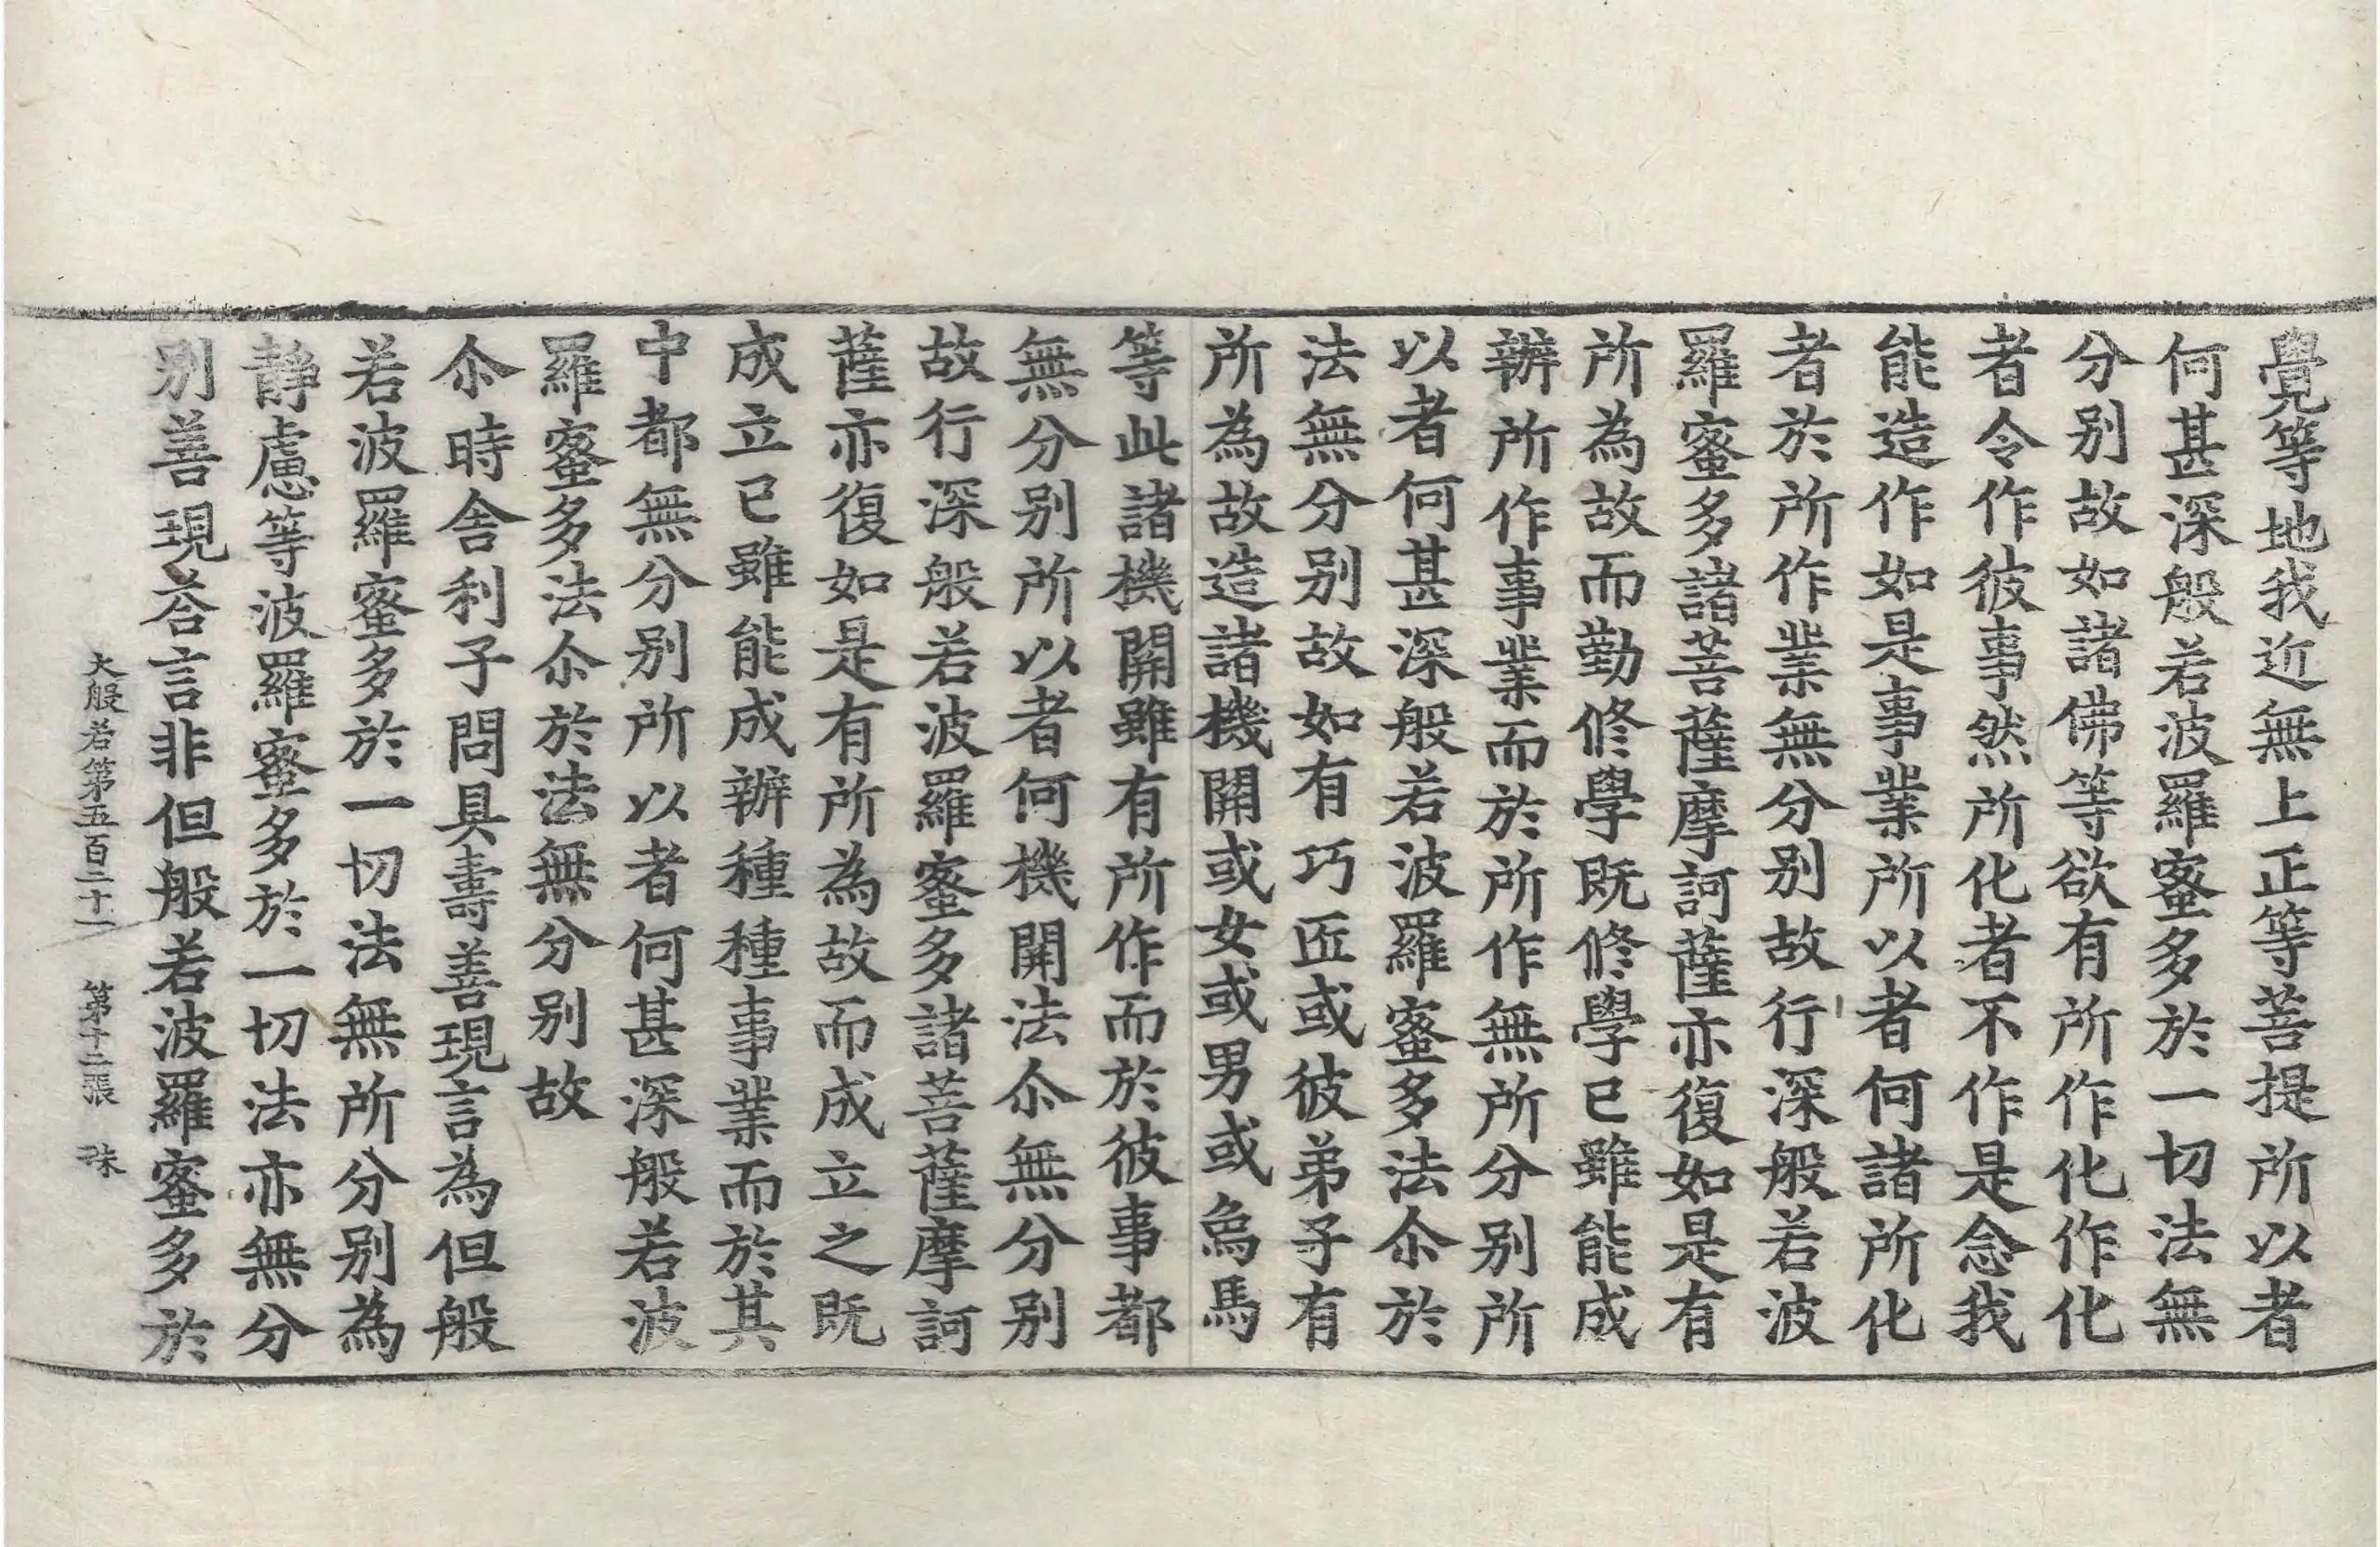 覺等地我近無上正等菩提所以者
何甚深般若波羅蜜多於一切法無
分别故如諸佛等欲有所作化作化
者令作彼事然所化者不作是念我
能造作如是事業所以者何諸所化
者於所作業無分别故行深般若波
羅蜜多諸菩薩摩訶薩亦復如是有
所為故而勤修學既修學已雖能成
辦所作事業而於所作無所分别所
以者何甚深般若波羅蜜多法尒於
法無分别故如有巧匠或彼弟子有
所為故造諸機關或女或男或烏馬
等此諸機關雖有所作而於彼事都
無分别所以者何機關法尒無分别
故行深般若波羅蜜多諸菩薩摩訶
薩亦復如是有所為故而成立之既
成立已雖能成辦種種事業而於其
中都無分别所以者何甚深般若波
羅蜜多法尒於法無分别故
尒時舍利子問具壽善現言為但般
若波羅蜜多於一切法無所分别為
静慮等波羅蜜多於一切法亦無分
别善現荅言非但般若波羅蜜多於
大般若第五百二十一 第十二張 珠